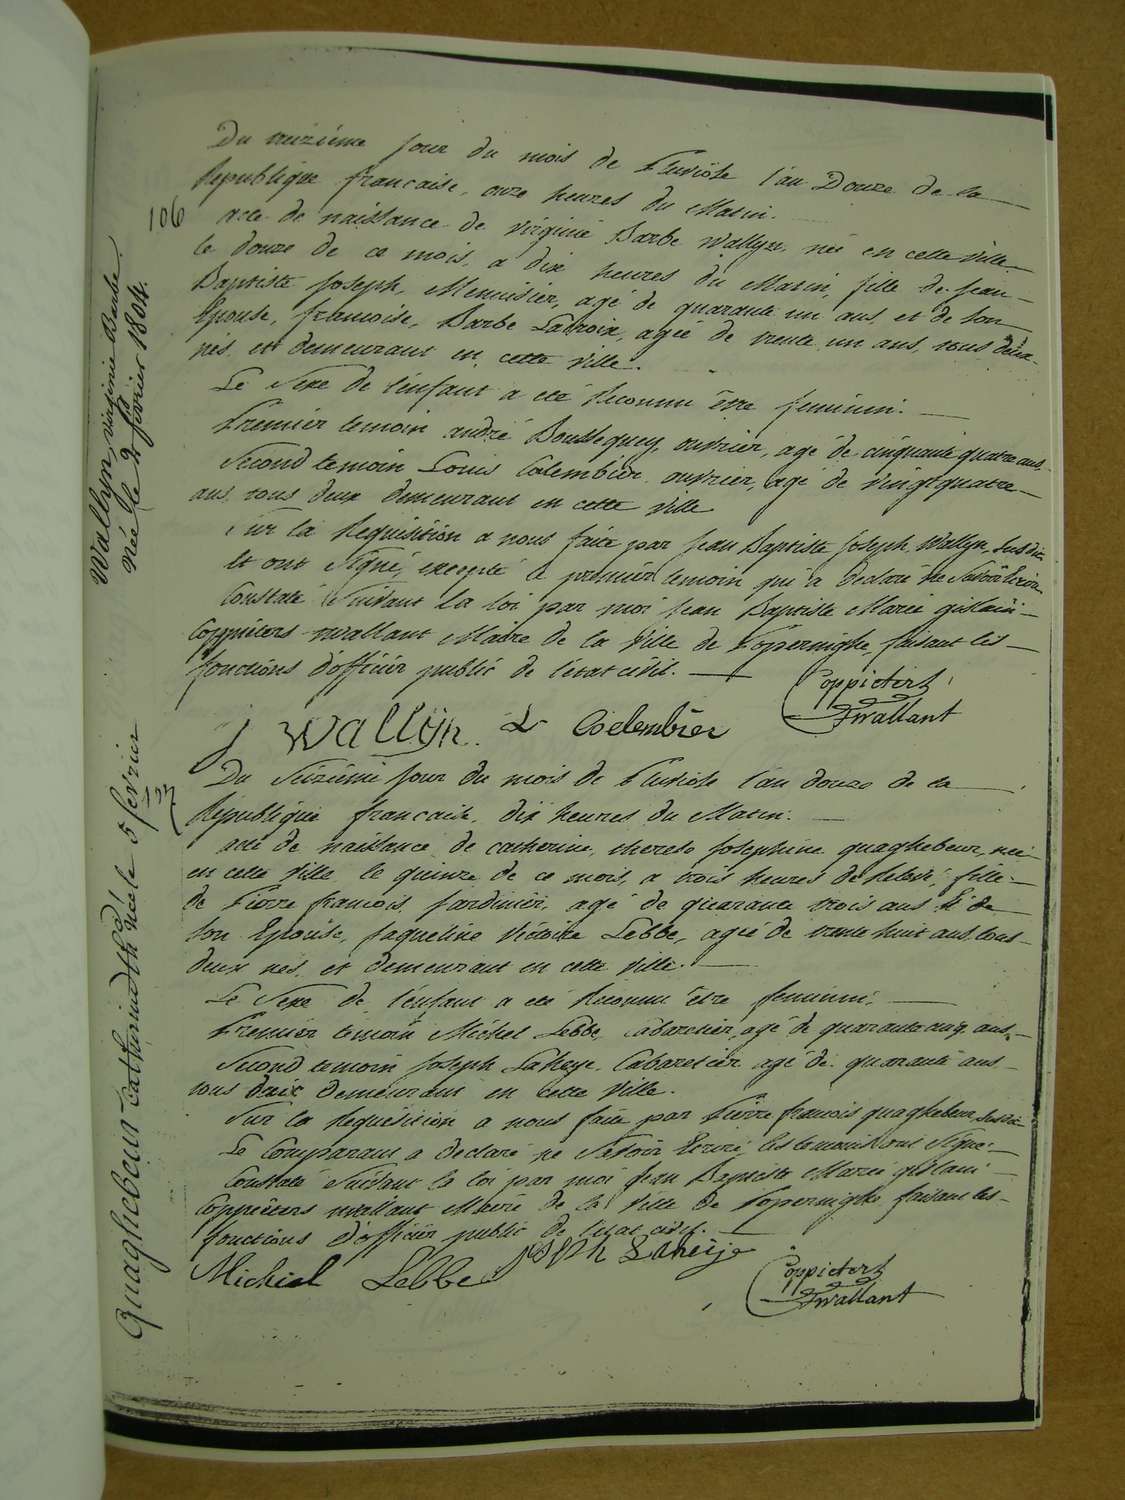 Du treizième jour du mois de Pluviôse l'an Douze de la
Republique francaise, onze heures du Matin.
106
acte de naissance de virginie Barbe Wallyn, née en cette ville
le douze de ce mois, a dix heures du Matin, fille de jean
Baptiste Joseph, Menuisier, agé de quarante un ans, et de son
Epouse, francoise, Barbe Lacroix, agée de trente un ans, tous deux
nés, et demeurant en cette ville.
Le Sexe de l'enfant a été Reconnu être feminin.
Premier temoin andré Boussequey, ouvrier, agé de cinquante quatre ans
Second temoin Louis Colembier, ouvrier, agé de vingt quatre
ans, tous deux demeurant en cette ville
Sur la Requisition a nous faite par jean Baptiste Joseph Wallyn, susdit
et ont Signé, excepté le premier temoin qui a declaré ne Savoir Ecrire
Constaté Suivant la loi par moi Jean Baptiste Marie gislain
Coppieters twallant Maire de la Ville de Poperinghe, faisant les
fonctions d'officier public de l'état civil.
Wallyn, virginie Barbe
née le 2 février 1804.
Coppieters
Twallant
J Wallyn L Colembier
Du Seizième jour du mois de Pluviôse l'an douze de la
Republique francaise, dix heures du Matin.
107
acte de naissance de catherine, therese Josephine quaghebeur, née
en cette Ville le quinze de ce mois, a trois heures de Relevé, fille
de Pierre francois, Jardinier, agé de quarante trois ans et de
son Epouse, Jaqueline Victoire Lebbe, agée de trente huit ans, tous
deux nés, et demeurant en cette ville.
Le Sexe de l'enfant a été Reconnu être feminin.
Premier temoin Michel Lebbe, Cabaretier, agé de quarante cinq ans
Second temoin Joseph Laheye, Cabaretier agé de quarante ans
tous deux demeurant en cette Ville.
Sur la Requisition a nous faite par Pierre francois quaghebeur susdit
Le Comparant a declaré ne Savoir Ecrire, les temoins ont Signé.
Constaté Suivant la loi par moi Jean Baptiste Marie gislain
Coppieters twallant Maire de la Ville de Poperinghe faisant les
fonctions d'officier public de l'etat civil.
Quaghebeur Catharina née le 5 fevrier
Michiel Lebbe Joseph Laheije
Coppieters
Twallant